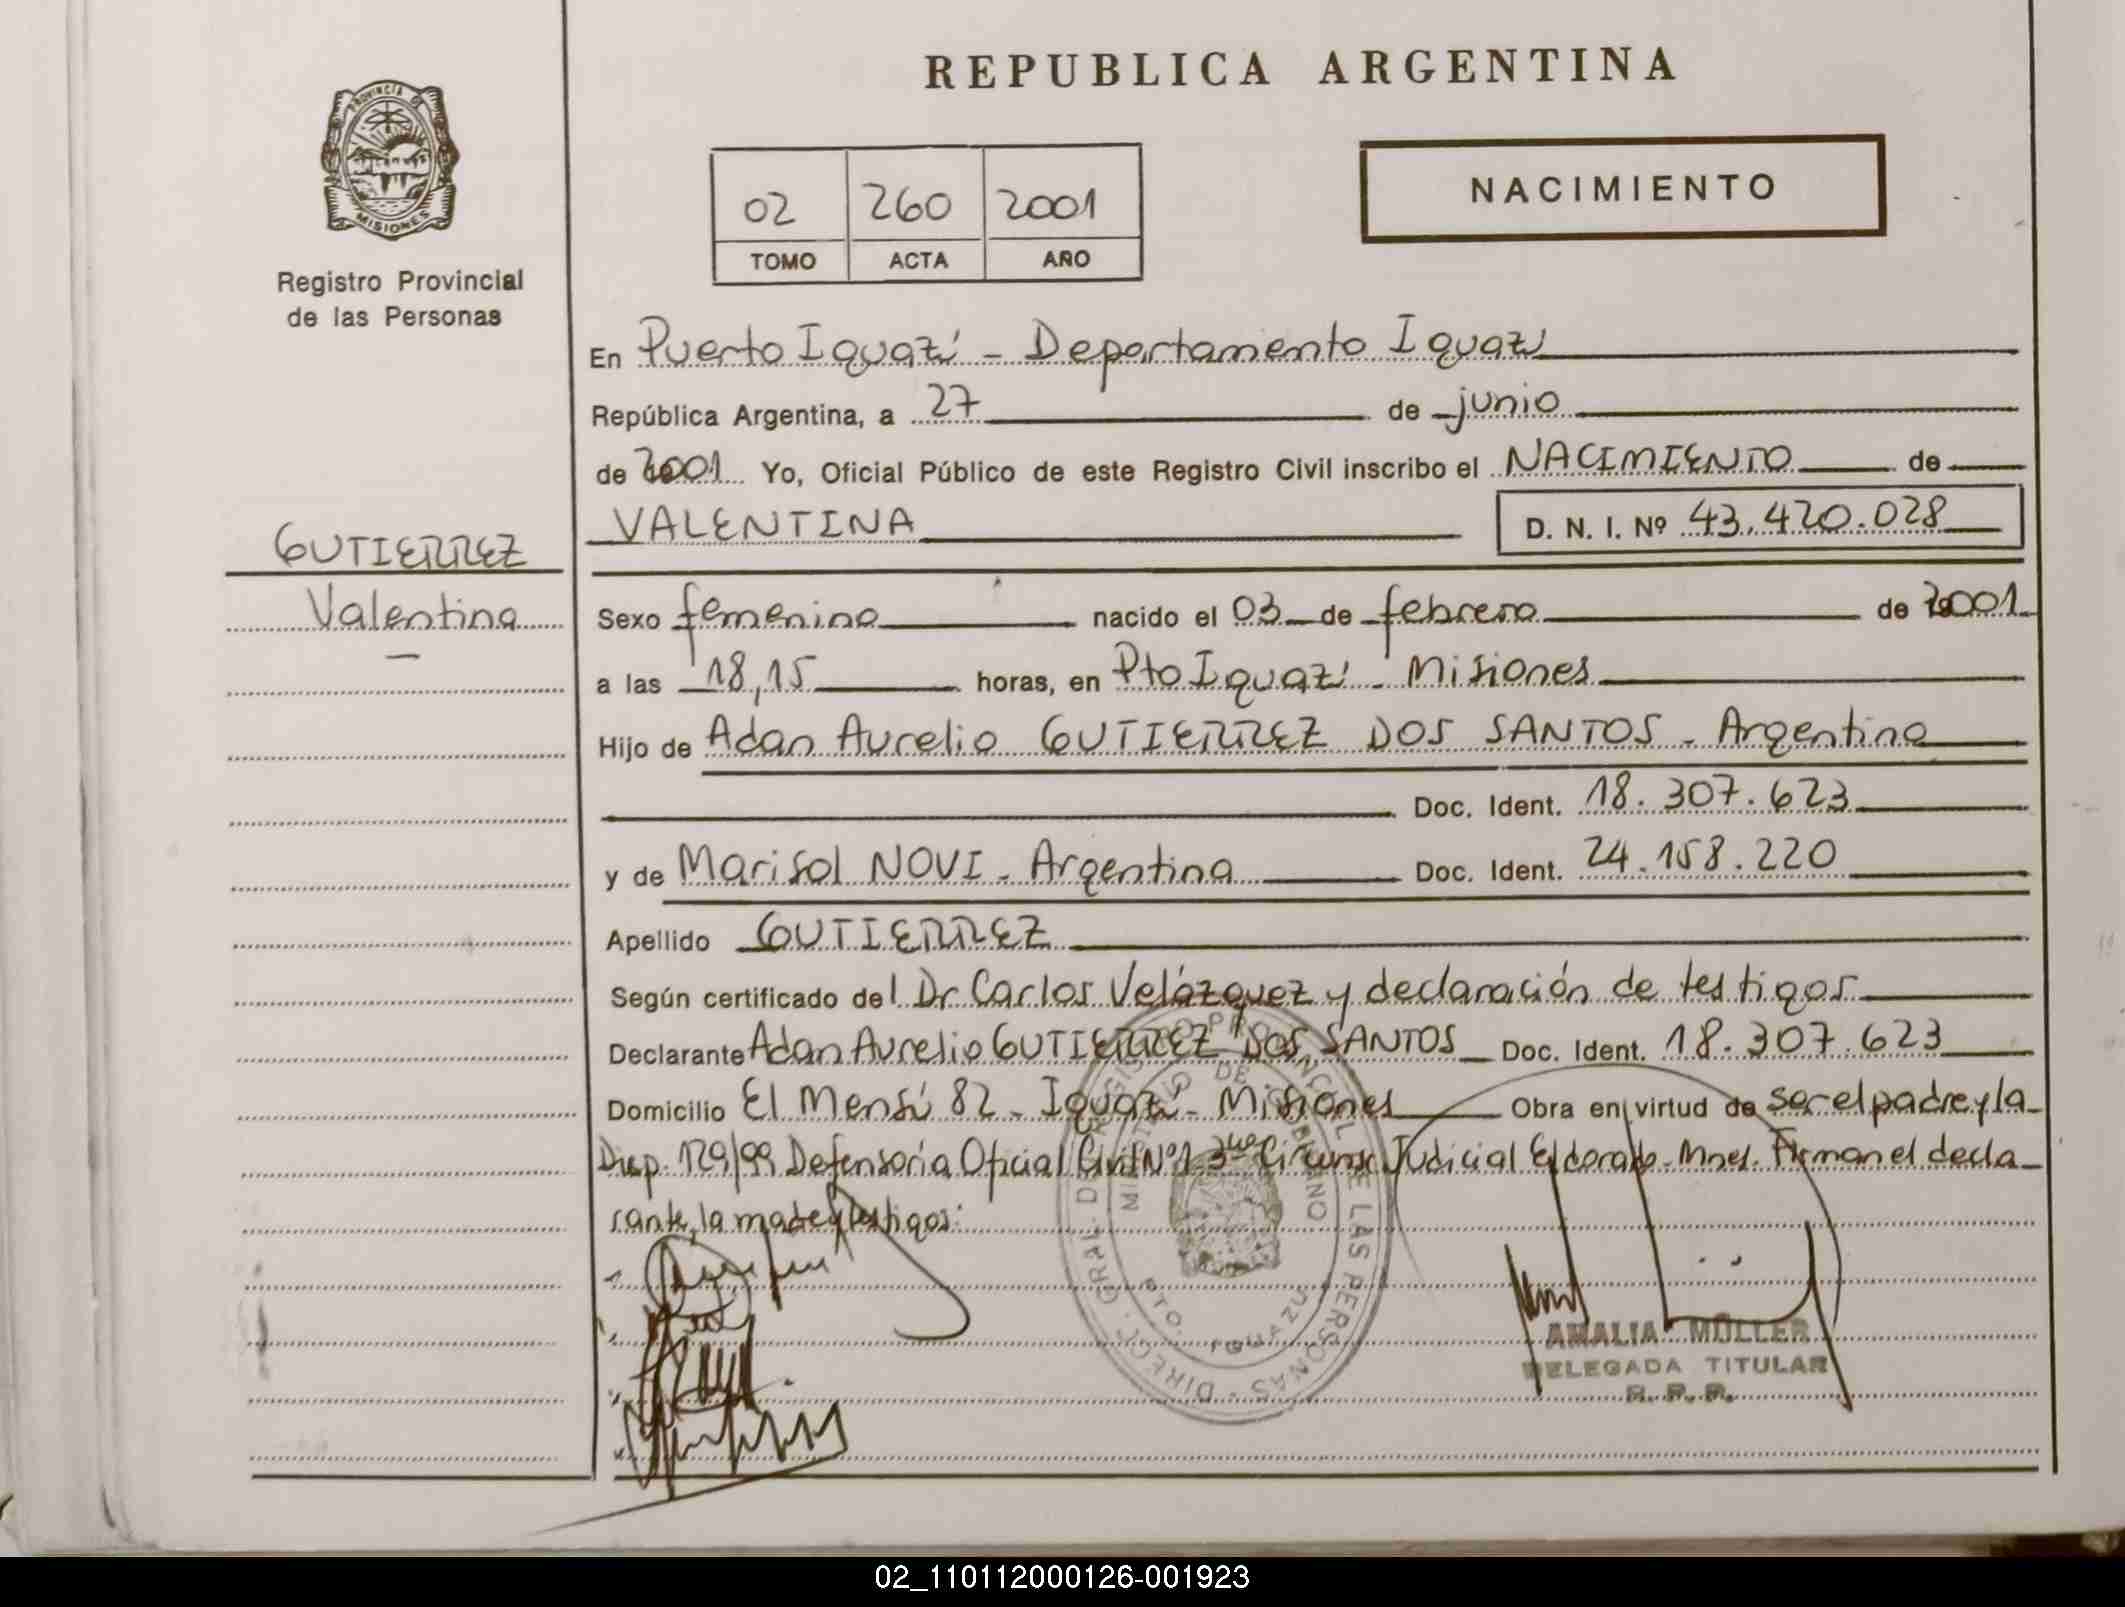 REPUBLICA ARGENTINA
PROVINCIA DE MISIONES
Registro Provincial
de las Personas
02 260 2001
TOMO ACTA AÑO
NACIMIENTO
En Puerto Iguazú - Departamento Iguazú
República Argentina, a 27 de junio
de 2001 Yo, Oficial Público de este Registro Civil inscribo el NACIMIENTO de
VALENTINA D. N. I. Nº 43.420.028
GUTIERREZ
Valentina
Sexo femenino nacido el 03 de febrero de 2001
a las 18,15 horas, en Pto Iguazú - Misiones
Hijo de Adan Aurelio GUTIERREZ DOS SANTOS - Argentino
Doc. Ident. 18.307.623
y de Marisol NOVI - Argentina Doc. Ident. 24.158.220
Apellido GUTIERREZ
Según certificado del Dr Carlos Velázquez y declaración de testigos
Declarante Adan Aurelio GUTIERREZ DOS SANTOS Doc. Ident. 18.307.623
Domicilio El Mensú 82 - Iguazú - Misiones Obra en virtud de ser el padre y la
Disp. 129/99 Defensoría Oficial Civil Nº1 3era Circunsc Judicial Eldorado - Mnes. Firman el decla-
rante, la madre y testigos:
DIREC. GRAL. DE REGISTRO PROVINCIAL DE LAS PERSONAS
MINISTERIO DE GOBIERNO
PTO. IGUAZU
AMALIA MÜLLER
DELEGADA TITULAR
R. P. P.
02_110112000126-001923